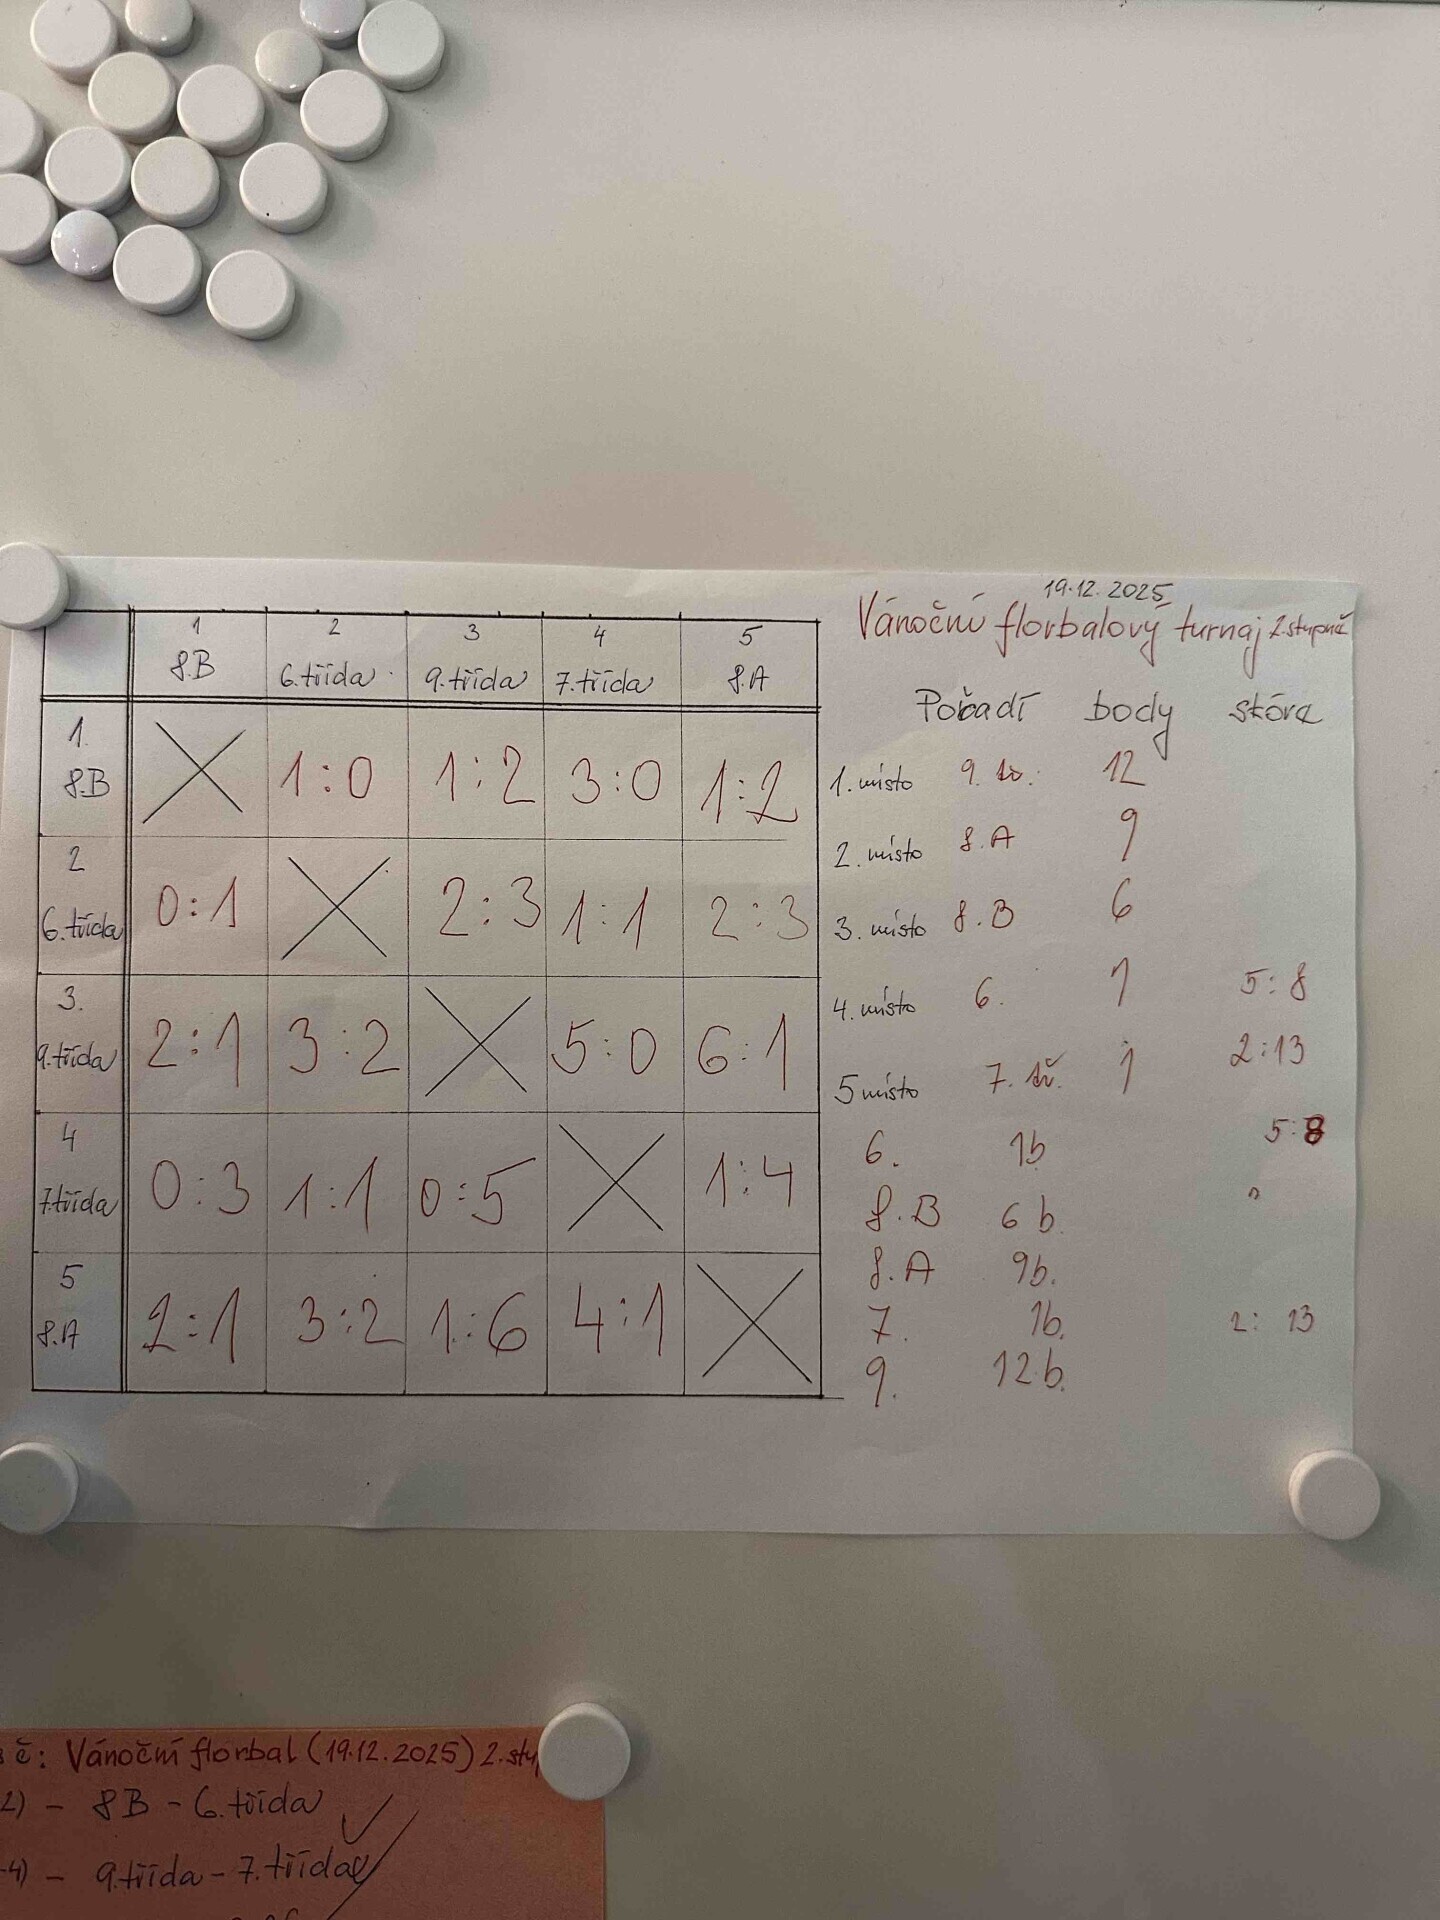 19.12.2025
Vánoční florbalový turnaj 2.stupně
1 2 3 4 5
8.B 6.třída 9.třída 7.třída 8.A
1. 8.B 1:0 1:2 3:0 1:2
2 6.třída 0:1 2:3 1:1 2:3
3. 9.třída 2:1 3:2 5:0 6:1
4 7.třída 0:3 1:1 0:5 1:4
5 8.A 2:1 3:2 1:6 4:1
Pořadí body skóre
1. místo 9. tř. 12
2. místo 8.A 9
3. místo 8.B 6
4. místo 6. 1 5:8
5 místo 7. tř. 1 2:13
6. 1b 5:8
8.B 6b.
8.A 9b.
7. 1b. 2:13
9. 12b.
č: Vánoční florbal (19.12.2025) 2.stu
2) - 8B - 6.třída
-4) - 9.třída - 7.třída